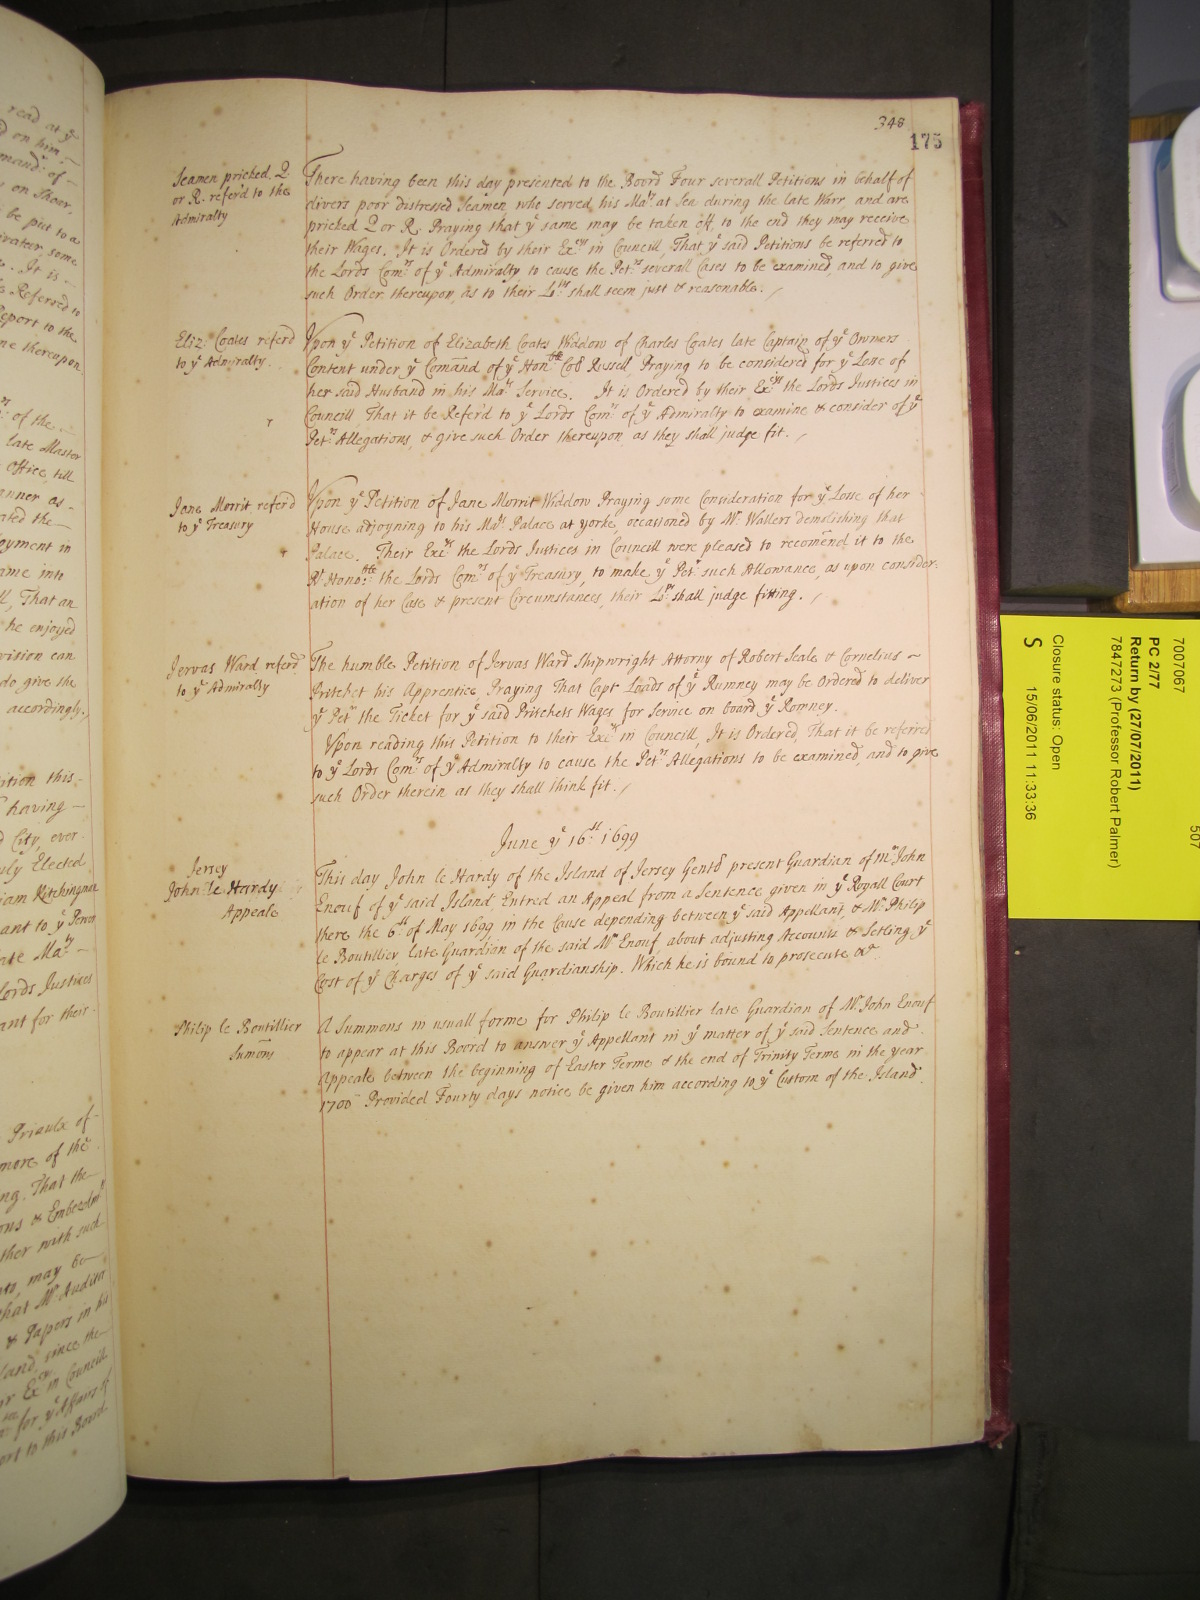 348
175
Seamen pricked Q
or R. referd to the
Admiralty
There having been this day presented to the Board Four severall Petitions in behalf of
divers poor distressed Seamen who served his Ma.ty at Sea during the late Warr and are
pricked Q or R. Praying that ye same may be taken off, to the end they may receive
their Wages. It is Ordered by their Ex.cys in Councill, That ye said Petitions be referred to
the Lords Com.rs of ye Admiralty to cause the Pet.rs severall Cases to be examined, and to give
such Order thereupon, as to their Lo.ps shall seem just & reasonable.
Eliz: Coates referd
to ye Admiralty.
Upon ye Petition of Elizabeth Coates Widdow of Charles Coates late Captain of ye Owners
Content under ye Comand of ye Hon.ble Coll Russell Praying to be considered for ye Losse of
her said Husband in his Ma.ts Service. It is Ordered by their Ex.cys the Lords Justices in
Councill That it be Referd to ye Lords Com.rs of ye Admiralty to examine & consider of ye
Pet.rs Allegations, & give such Order thereupon, as they shall judge fit.
Jane Morrit referd
to ye Treasury
Upon ye Petition of Jane Morrit Widdow Praying some Consideration for ye Losse of her
House adjoyning to his Ma.ts Palace at Yorke, occasioned by Mr. Wallers demolishing that
Palace. Their Ex.cys the Lords Justices in Councill were pleased to recomend it to the
Rt. Hono.ble the Lords Com.rs of ye Treasury, to make ye Pet.r such Allowance, as upon consider-
ation of her Case & present Circumstances, their Lo.ps shall judge fitting.
Jervas Ward referd
to ye Admiralty
The humble Petition of Jervas Ward Shipwright Attorny of Robert Seale & Cornelius
Pritchet his Apprentice Praying That Capt. Loads of ye Rumney may be Ordered to deliver
ye Pet.r the Ticket for ye said Pritchets Wages for Service on board ye Romney.
Upon reading this Petition to their Ex.cys in Councill, It is Ordered, That it be referred
to ye Lords Com.rs of ye Admiralty to cause the Pet.rs Allegations to be examined, and to give
such Order therein as they shall think fit.
June ye 16.th 1699
Jersey
John le Hardy
Appeale
This day John le Hardy of the Island of Jersey Gent present Guardian of Mr. John
Enouf of ye said Island Entred an Appeal from a Sentence given in ye Royall Court
there the 6.th of May 1699 in the Cause depending between ye said Appellant, & Mr. Philip
le Boutillier, late Guardian of the said Mr. Enouf, about adjusting Accounts & Setling ye
Cost of ye Charges of ye said Guardianship. Which he is bound to prosecute &c.
Philip le Boutillier
Sumons
A Summons in usuall forme for Philip le Boutillier late Guardian of Mr. John Enouf
to appear at this Board to answer ye Appellant in ye matter of ye said Sentence and
Appeale between the beginning of Easter Terme & the end of Trinity Terme in the year
1700 Provided Fourty days notice be given him according to ye Custom of the Island
read at ye
on him,
mand of
on Shoar,
be put to a
some
It is
Referred to
Report to the
thereupon
of the
late Master
Office, till
manner as
the
in
came into
That an
he enjoyed
can
do give the
accordingly.
Petition this
having
City, ever
duly Elected
Ketchingman
ant to ye
late Ma.ty
Lords Justices
ant for their
Priaulx of
more of the
That the
with such
may be
that Mr. Auditor
& Papers in his
since the
Ex.cys in Councill
for ye Affairs of
to this Board
7007067
507
PC 2/77
Return by (27/07/2011)
7847273 (Professor Robert Palmer)
Closure status: Open
S
15/06/2011 11:33:36